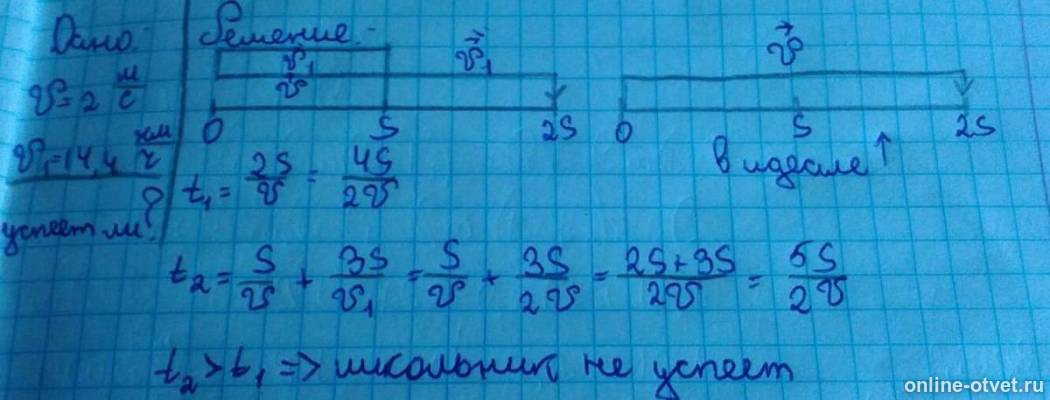 Дано:
Решение:
v = 2 м/с
v₁ = 14,4 км/ч
?
успеет ли?
v₁
v
v₁
0 S 2S
v
0 S 2S
в идеале ↑
t₁ = 2S/v = 4S/2v
t₂ = S/v + 3S/v₁ = S/v + 3S/2v = 2S+3S/2v = 5S/2v
t₂ > t₁ => школьник не успеет
online-otvet.ru